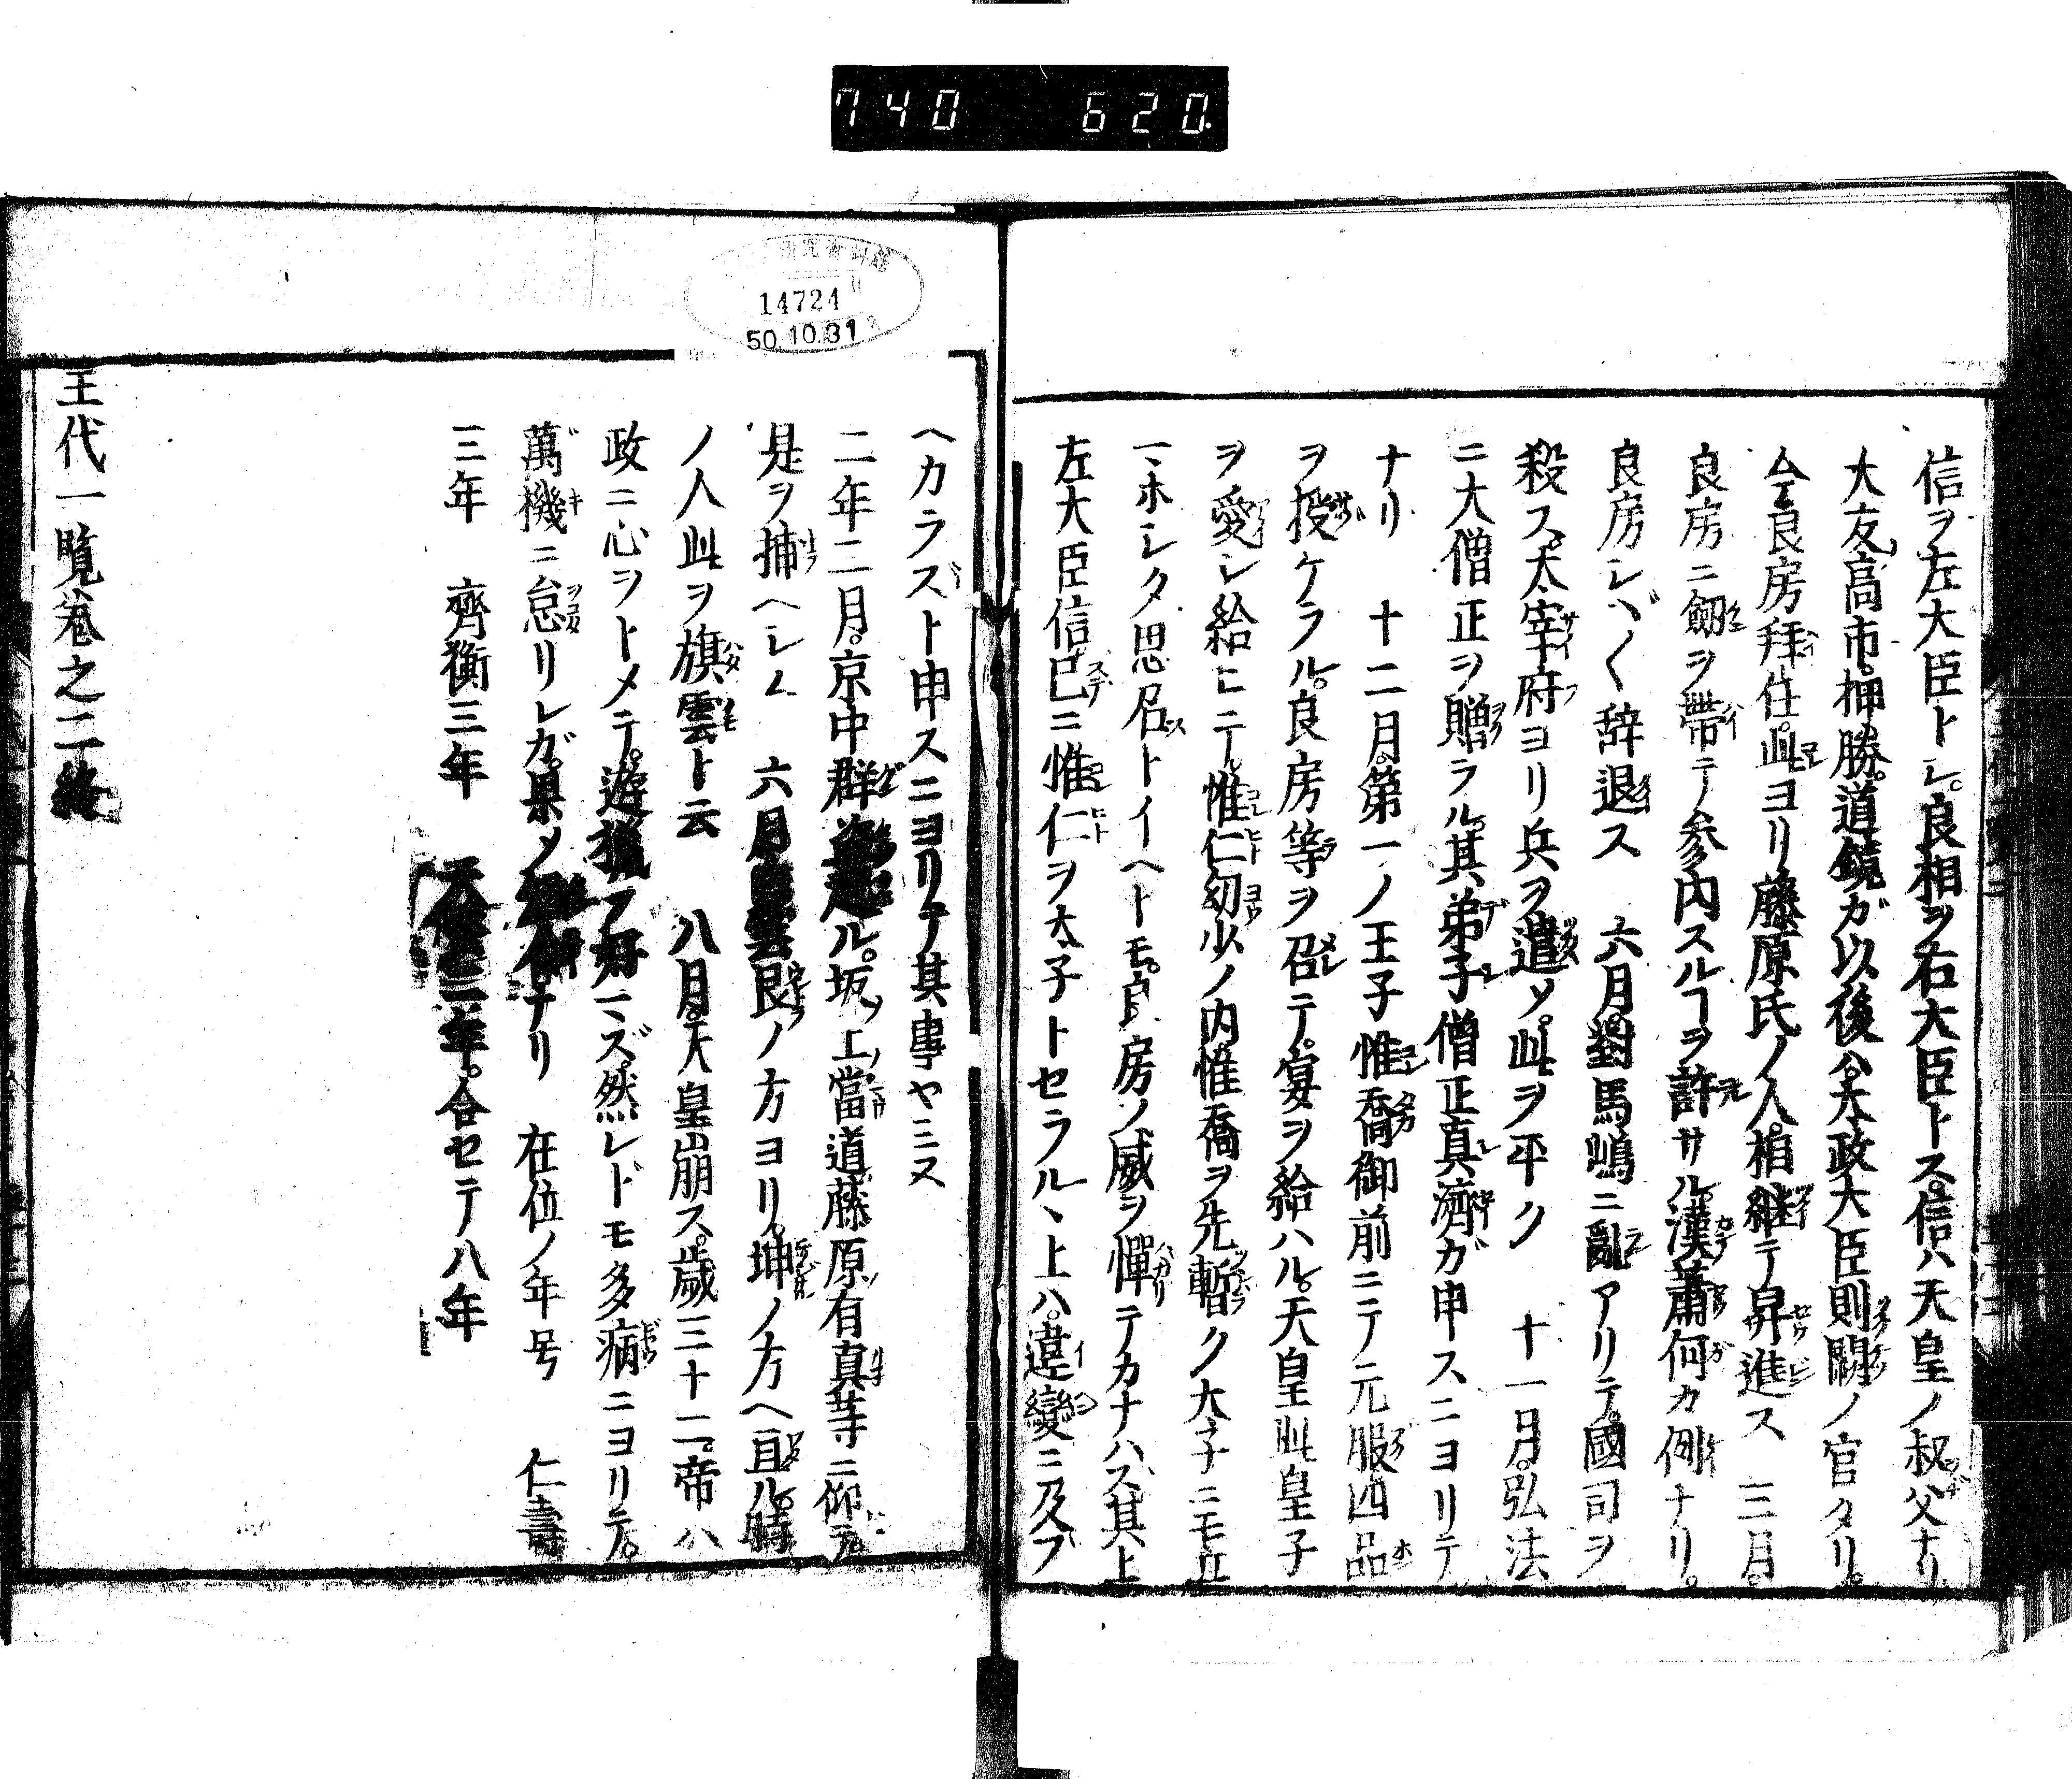 740 620.
14724
50.10.31
信ヲ左大臣トシ。良相ヲ右大臣トス。信ハ天皇ノ叔父ナリ
大友高市。押勝。道鏡ガ以後ハ太政大臣則闕ノ官タリ。
今良房拜任。此ヨリ藤原氏ノ人。相継テ昇進ス 三月。
良房ニ劔ヲ帶テ参内スルヿヲ許サル。漢蕭何カ例ナリ。
良房シバ〱辞退ス 六月。對馬嶋ニ亂アリテ。國司ヲ
殺ス。太宰府ヨリ兵ヲ遣ソ。此ヲ平ク 十一月。弘法
ニ大僧正ヲ贈ラル。其弟子僧正真濟ガ申スニヨリテ
ナリ 十二月。第一ノ王子惟喬御前ニテ元服四品
ヲ授ケラル。良房等ヲ召テ。宴ヲ給ハル。天皇此皇子
ヲ愛シ給ヒニテ。惟仁幼少ノ内惟喬ヲ先暫ク太子ニモ立
マホシク思召トイヘトモ。良房ノ威ヲ憚テカナハズ其上
左大臣信已ニ惟仁ヲ太子トセラルヽ上ハ。違變ニ及フ
ヘカラズト申スニヨリテ其事ヤミヌ
二年二月。京中群盗起ル。坂上當道藤原有真等ニ仰テ。
是ヲ捕ヘシム 六月白雲艮ノ方ヨリ。坤ノ方ヘ亘ル。時
ノ人此ヲ旗雲ト云 八月。天皇崩ス。歳三十二。帝ハ
政ニ心ヲトメテ。遊獵ヲ好マズ。然レドモ多病ニヨリテ。
萬機ニ怠リシガ。果ソ短命ナリ 在位ノ年号 仁壽
三年 齊衡三年 天安二年。合セテ八年
王代一覧巻之二終